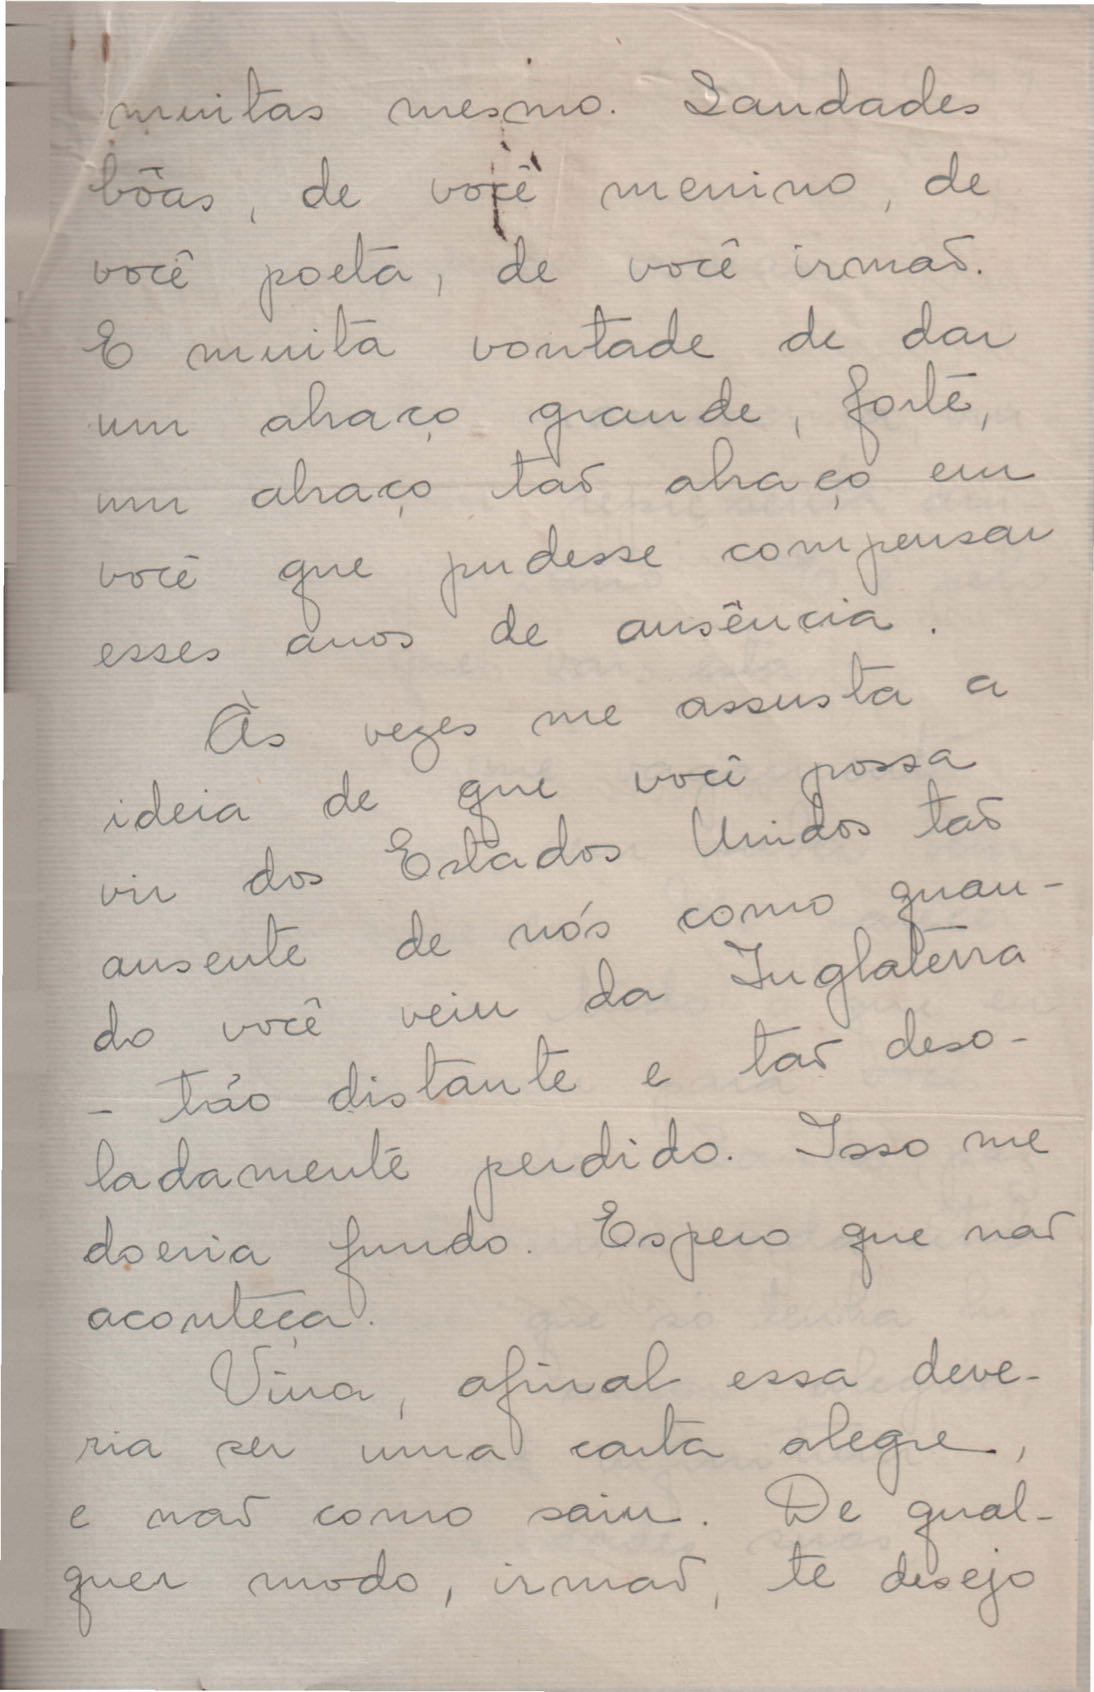 muitas mesmo. Saudades
bôas, de você menino, de
você poeta, de você irmão.
E muita vontade de dar
um abraço grande, forte,
um abraço tão abraço em
você que pudesse compensar
esses anos de ausência.
Às vezes me assusta a
ideia de que você possa
vir dos Estados Unidos tão
ausente de nós como quan-
do você veiu da Inglaterra
- tão distante e tão deso-
ladamente perdido. Isso me
doeria fundo. Espero que não
aconteça.
Vina, afinal essa deve-
ria ser uma carta alegre,
e não como saiu. De qual-
quer modo, irmão, te desejo